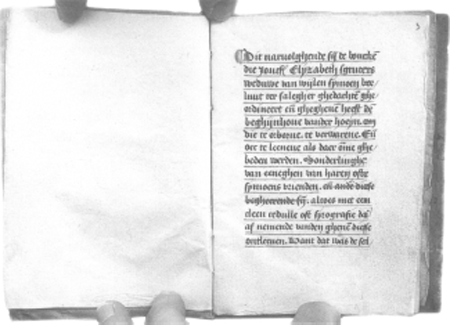 3
Dit naervolghende sijn de boucken
die Joncf Elyzabeth sgruters
weduwe van wijlen symoen
ter salegher ghedachte ghe
ordineert en̄ ghegheven heeft dē
beghijnhove vander hoeyn. om
die te orborne. te verwarene. En̄
oec te leenene als daer ōme ghe
beden werden. Sonderlinghe
van eeneghen van haren ofte
symoens vrienden. en̄ ande diese
begheerende sijn. alwes met een
cleen cedulle oft
af nemende vanden ghenē diese
ontleenen. Want dat was de sal